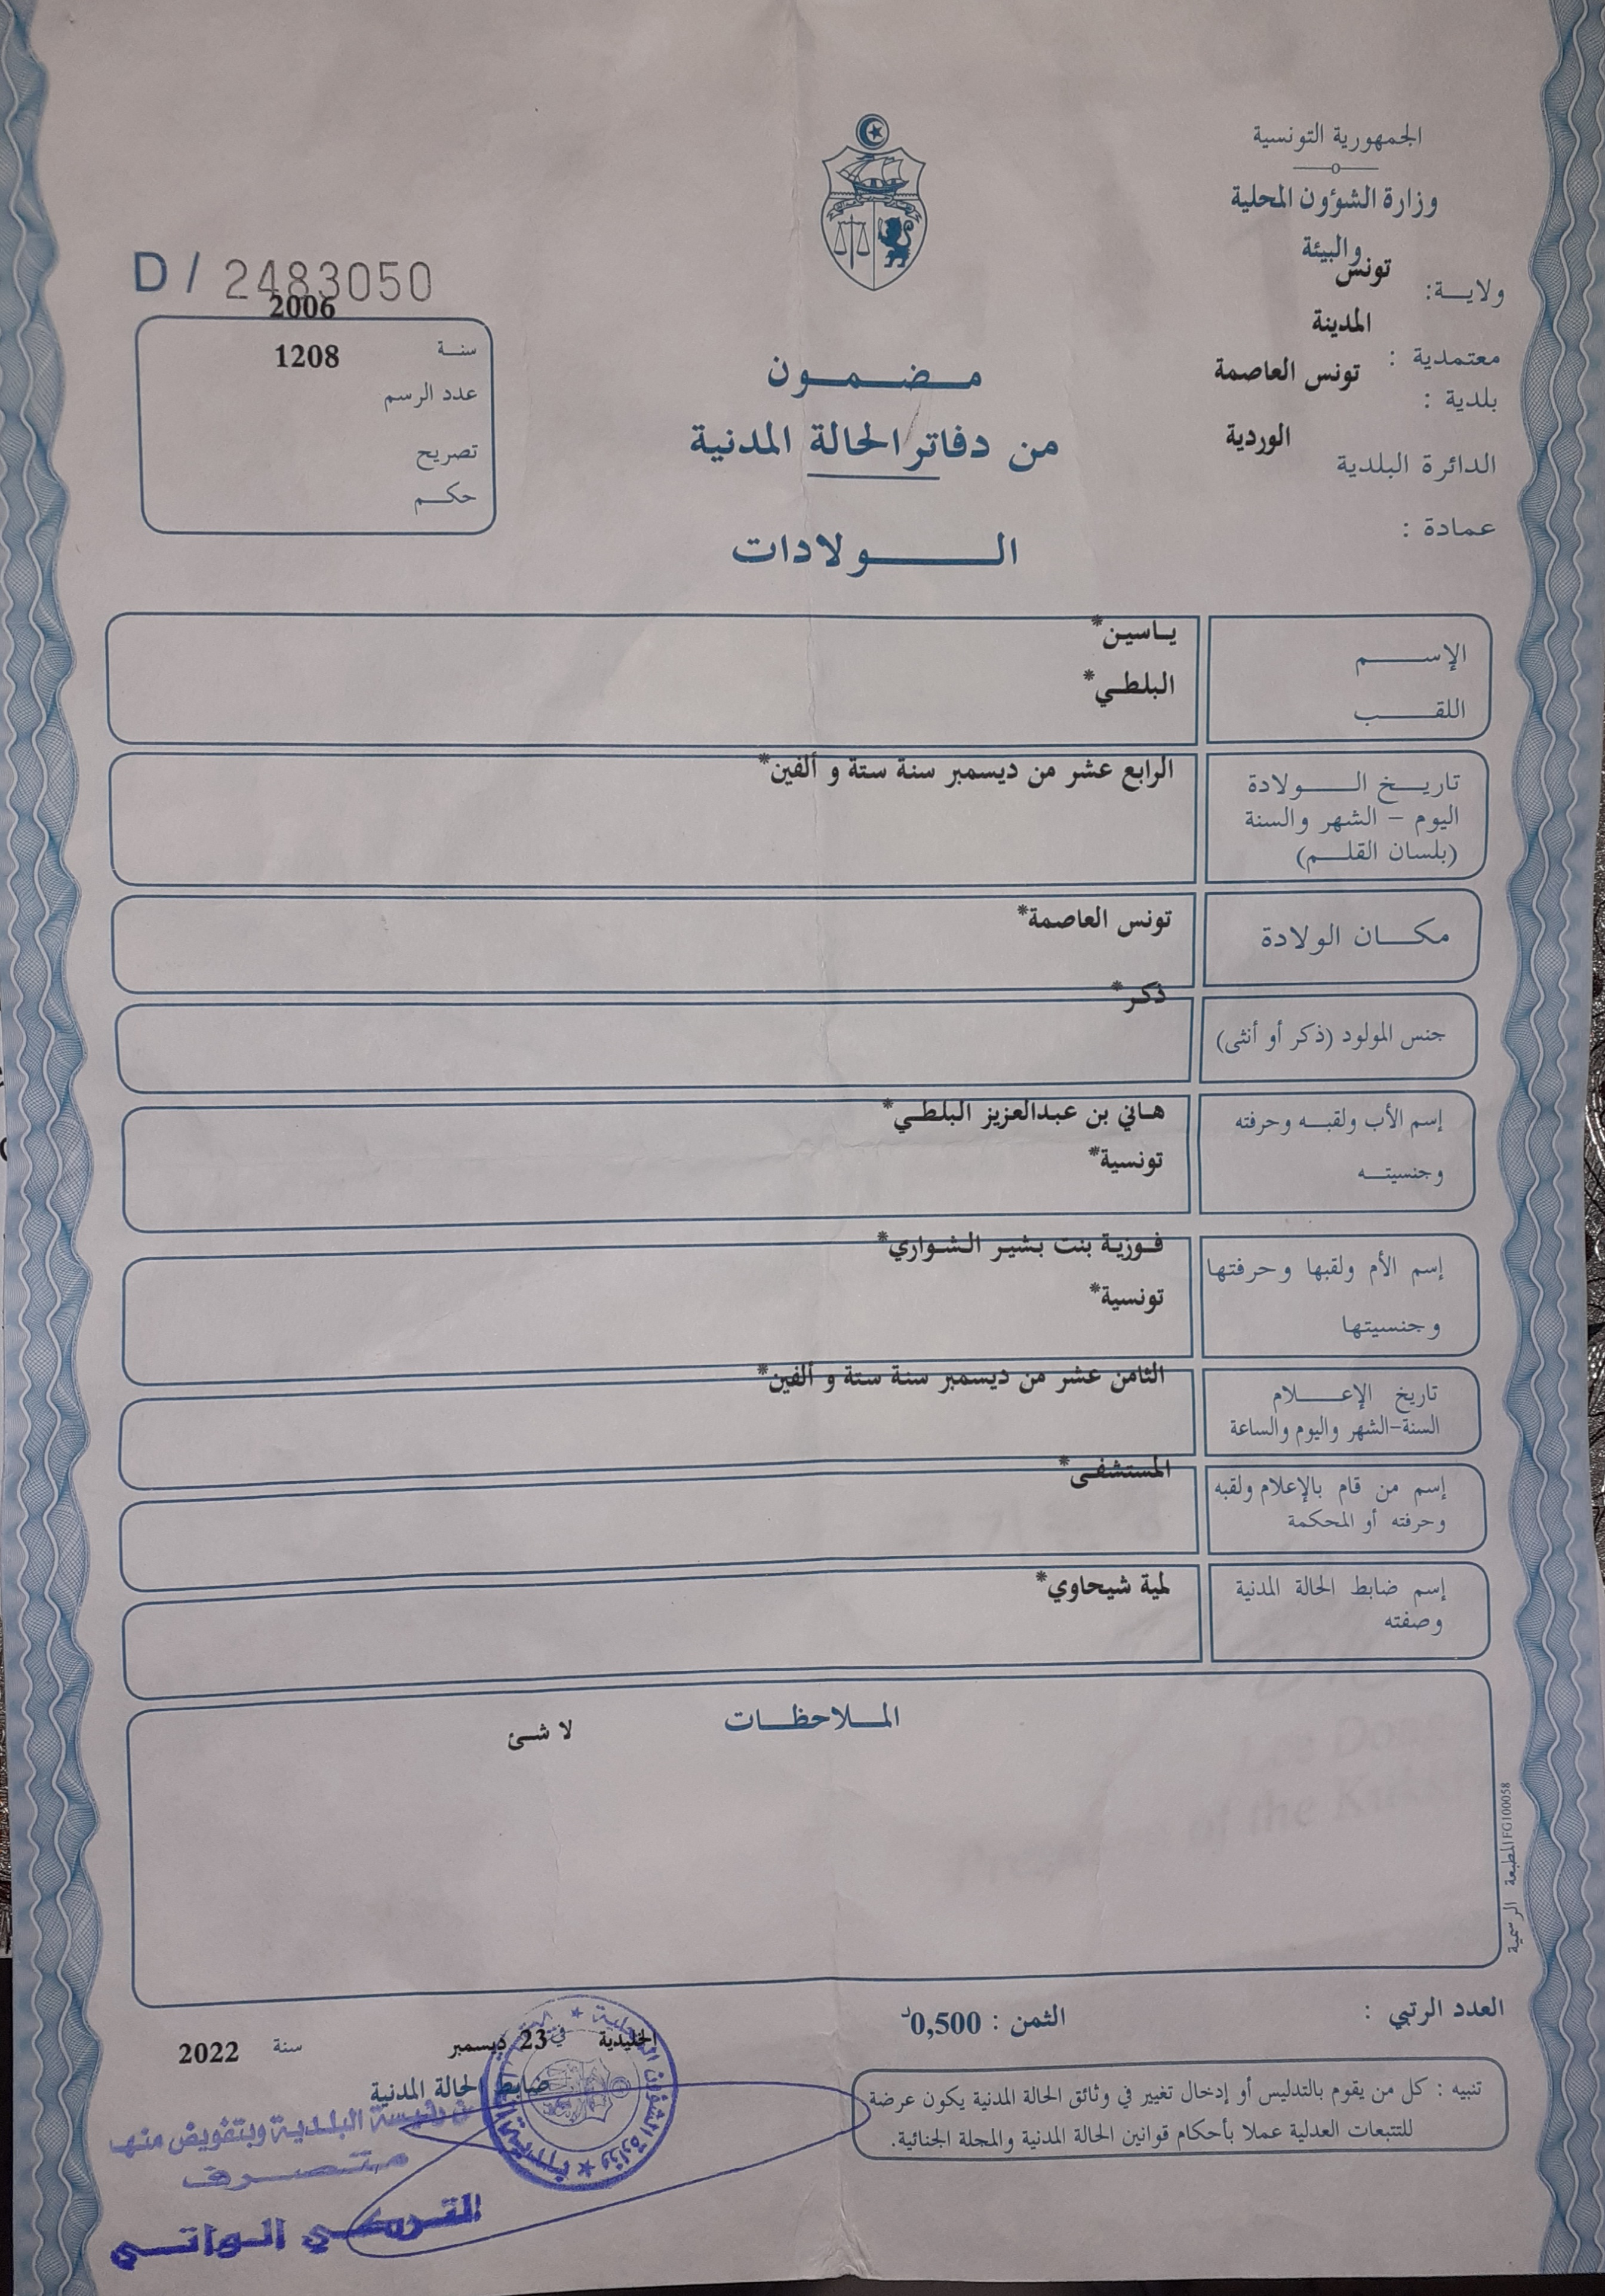 الجمهورية التونسية
وزارة الشؤون المحلية
والبيئة
ولايــة: تونس
المدينة
معتمدية :
تونس العاصمة
بلدية :
الوردية
الدائرة البلدية
عمادة :
D / 2483050
2006
سنـة
1208
عدد الرسم
تصريح
حكــم
مــضــمــون
من دفاتر الحالة المدنية
الــــولادات
الإســــم
ياسين*
اللقــــب
البلطي*
تاريــخ الــــولادة
اليوم – الشهر والسنة
(بلسان القلــم)
الرابع عشر من ديسمبر سنة ستة و ألفين*
مكــان الولادة
تونس العاصمة*
جنس المولود (ذكر أو أنثى)
ذكر*
إسم الأب ولقبــه وحرفته
هاني بن عبدالعزيز البلطي*
وجنسيتــه
تونسية*
إسم الأم ولقبها وحرفتها
فوزية بنت بشير الشواري*
وجنسيتها
تونسية*
تاريخ الإعــــلام
السنة-الشهر واليوم والساعة
الثامن عشر من ديسمبر سنة ستة و ألفين*
إسم من قام بالإعلام ولقبه
وحرفته أو المحكمة
المستشفى*
إسم ضابط الحالة المدنية
وصفته
لمية شيحاوي*
المــلاحظــات
لا شئ
المطبعة الرسمية FG100058
العدد الرتبي :
الثمن : 0,500د
الخليدية في 23 ديسمبر سنة 2022
ضابط الحالة المدنية
عن رئيسة البلدية وبتفويض منها
متصرف
التركي الواتي
تنبيه : كل من يقوم بالتدليس أو إدخال تغيير في وثائق الحالة المدنية يكون عرضة
للتتبعات العدلية عملا بأحكام قوانين الحالة المدنية والمجلة الجنائية.